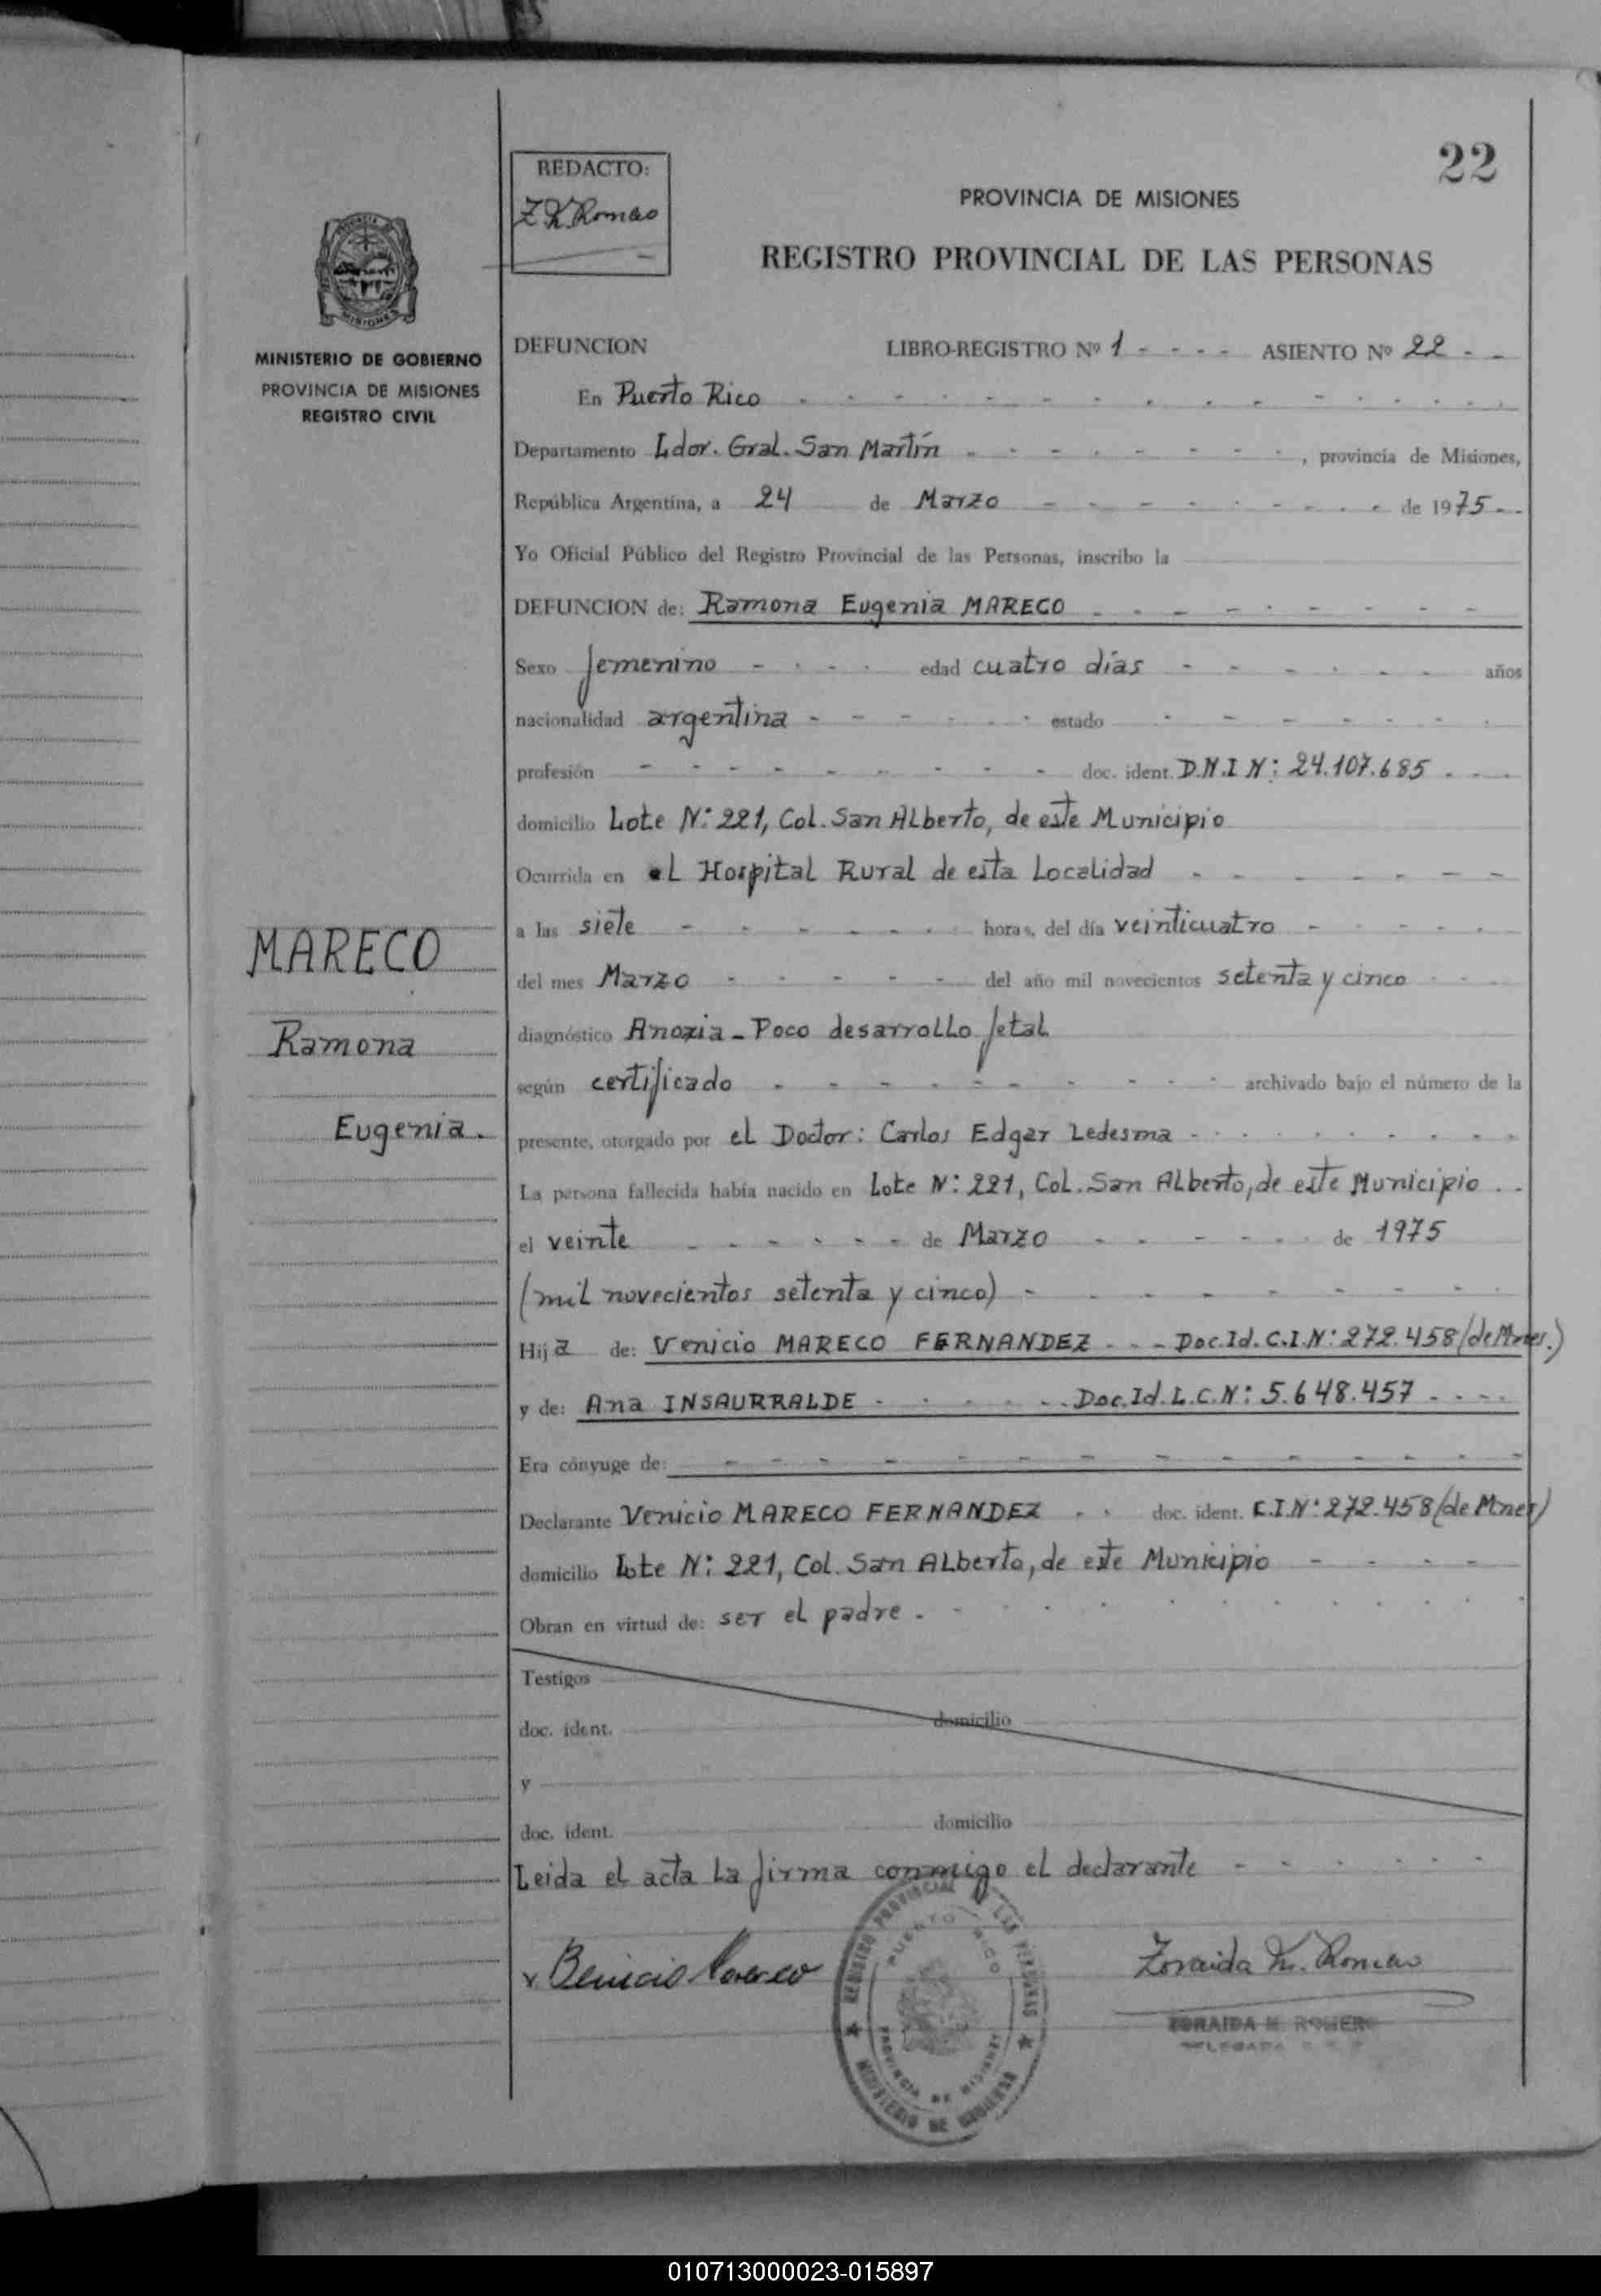 22
REDACTO:
Z K Romero
PROVINCIA DE MISIONES
REGISTRO PROVINCIAL DE LAS PERSONAS
MISIONES
MINISTERIO DE GOBIERNO
PROVINCIA DE MISIONES
REGISTRO CIVIL
DEFUNCION LIBRO-REGISTRO Nº 1 - - - - ASIENTO Nº 22 - -
En Puerto Rico
Departamento Ldor. Gral. San Martín , provincia de Misiones,
República Argentina, a 24 de Marzo de 1975 - -
Yo Oficial Público del Registro Provincial de las Personas, inscribo la
DEFUNCION de: Ramona Eugenia MARECO
Sexo femenino edad cuatro días años
nacionalidad argentina estado
profesión doc. ident. D.N.I N: 24.107.685
domicilio Lote N: 221, Col. San Alberto, de este Municipio
Ocurrida en el Hospital Rural de esta Localidad
a las siete horas, del día veinticuatro
del mes Marzo del año mil novecientos setenta y cinco
diagnóstico Anoxia - Poco desarrollo fetal
según certificado archivado bajo el número de la
presente, otorgado por el Doctor: Carlos Edgar Ledesma
La persona fallecida había nacido en Lote N: 221, Col. San Alberto, de este Municipio
el veinte de Marzo de 1975
(mil novecientos setenta y cinco)
Hija de: Venicio MARECO FERNANDEZ - - - Doc. Id. C.I. N: 272.458 (de Mnes.)
y de: Ana INSAURRALDE Doc. Id. L.C. N: 5.648.457
Era cónyuge de:
Declarante Venicio MARECO FERNANDEZ doc. ident. C.I. N: 272.458 (de Mnes)
domicilio Lote N: 221, Col. San Alberto, de este Municipio
Obran en virtud de: ser el padre.
Testigos
doc. ident. domicilio
y
doc. ident. domicilio
Leida el acta la firma conmigo el declarante
MARECO
Ramona
Eugenia.
Benicio Mareco
Zoraida K. Romero
REGISTRO PROVINCIAL DE LAS PERSONAS
PUERTO RICO
PROVINCIA DE MISIONES
MINISTERIO DE GOBIERNO
ZORAIDA K. ROMERO
DELEGADA
010713000023-015897